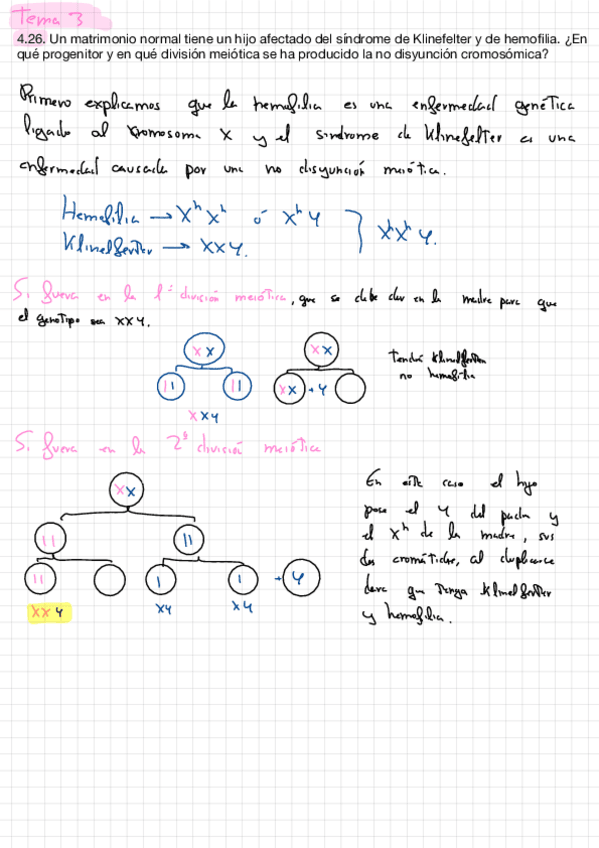 Tema 3
4.26. Un matrimonio normal tiene un hijo afectado del síndrome de Klinefelter y de hemofilia. ¿En
qué progenitor y en qué división meiótica se ha producido la no disyunción cromosómica?
Primero explicamos que la hemofilia es una enfermedad genética
ligada al cromosoma X y el sindrome de Klinefelter es una
enfermedad causada por una no disyunción meiótica.
Hemofilia → XʰXʰ ó XʰY } XʰXʰY.
Klinelferter → XXY.
Si fuera en la 1ª división meiótica, que se debe dar en la madre para que
el genotipo sea XXY.
XX XX
Tendrá Klinelferter
no hemofilia
XX + Y
XXY
Si fuera en la 2ª división meiótica
XX
+ Y
XXY XY XY
En este caso el hijo
posee el Y del padre y
el Xʰ de la madre, sus
dos cromátidas, al duplicarse
hará que tenga Klinelferter
y hemofilia.